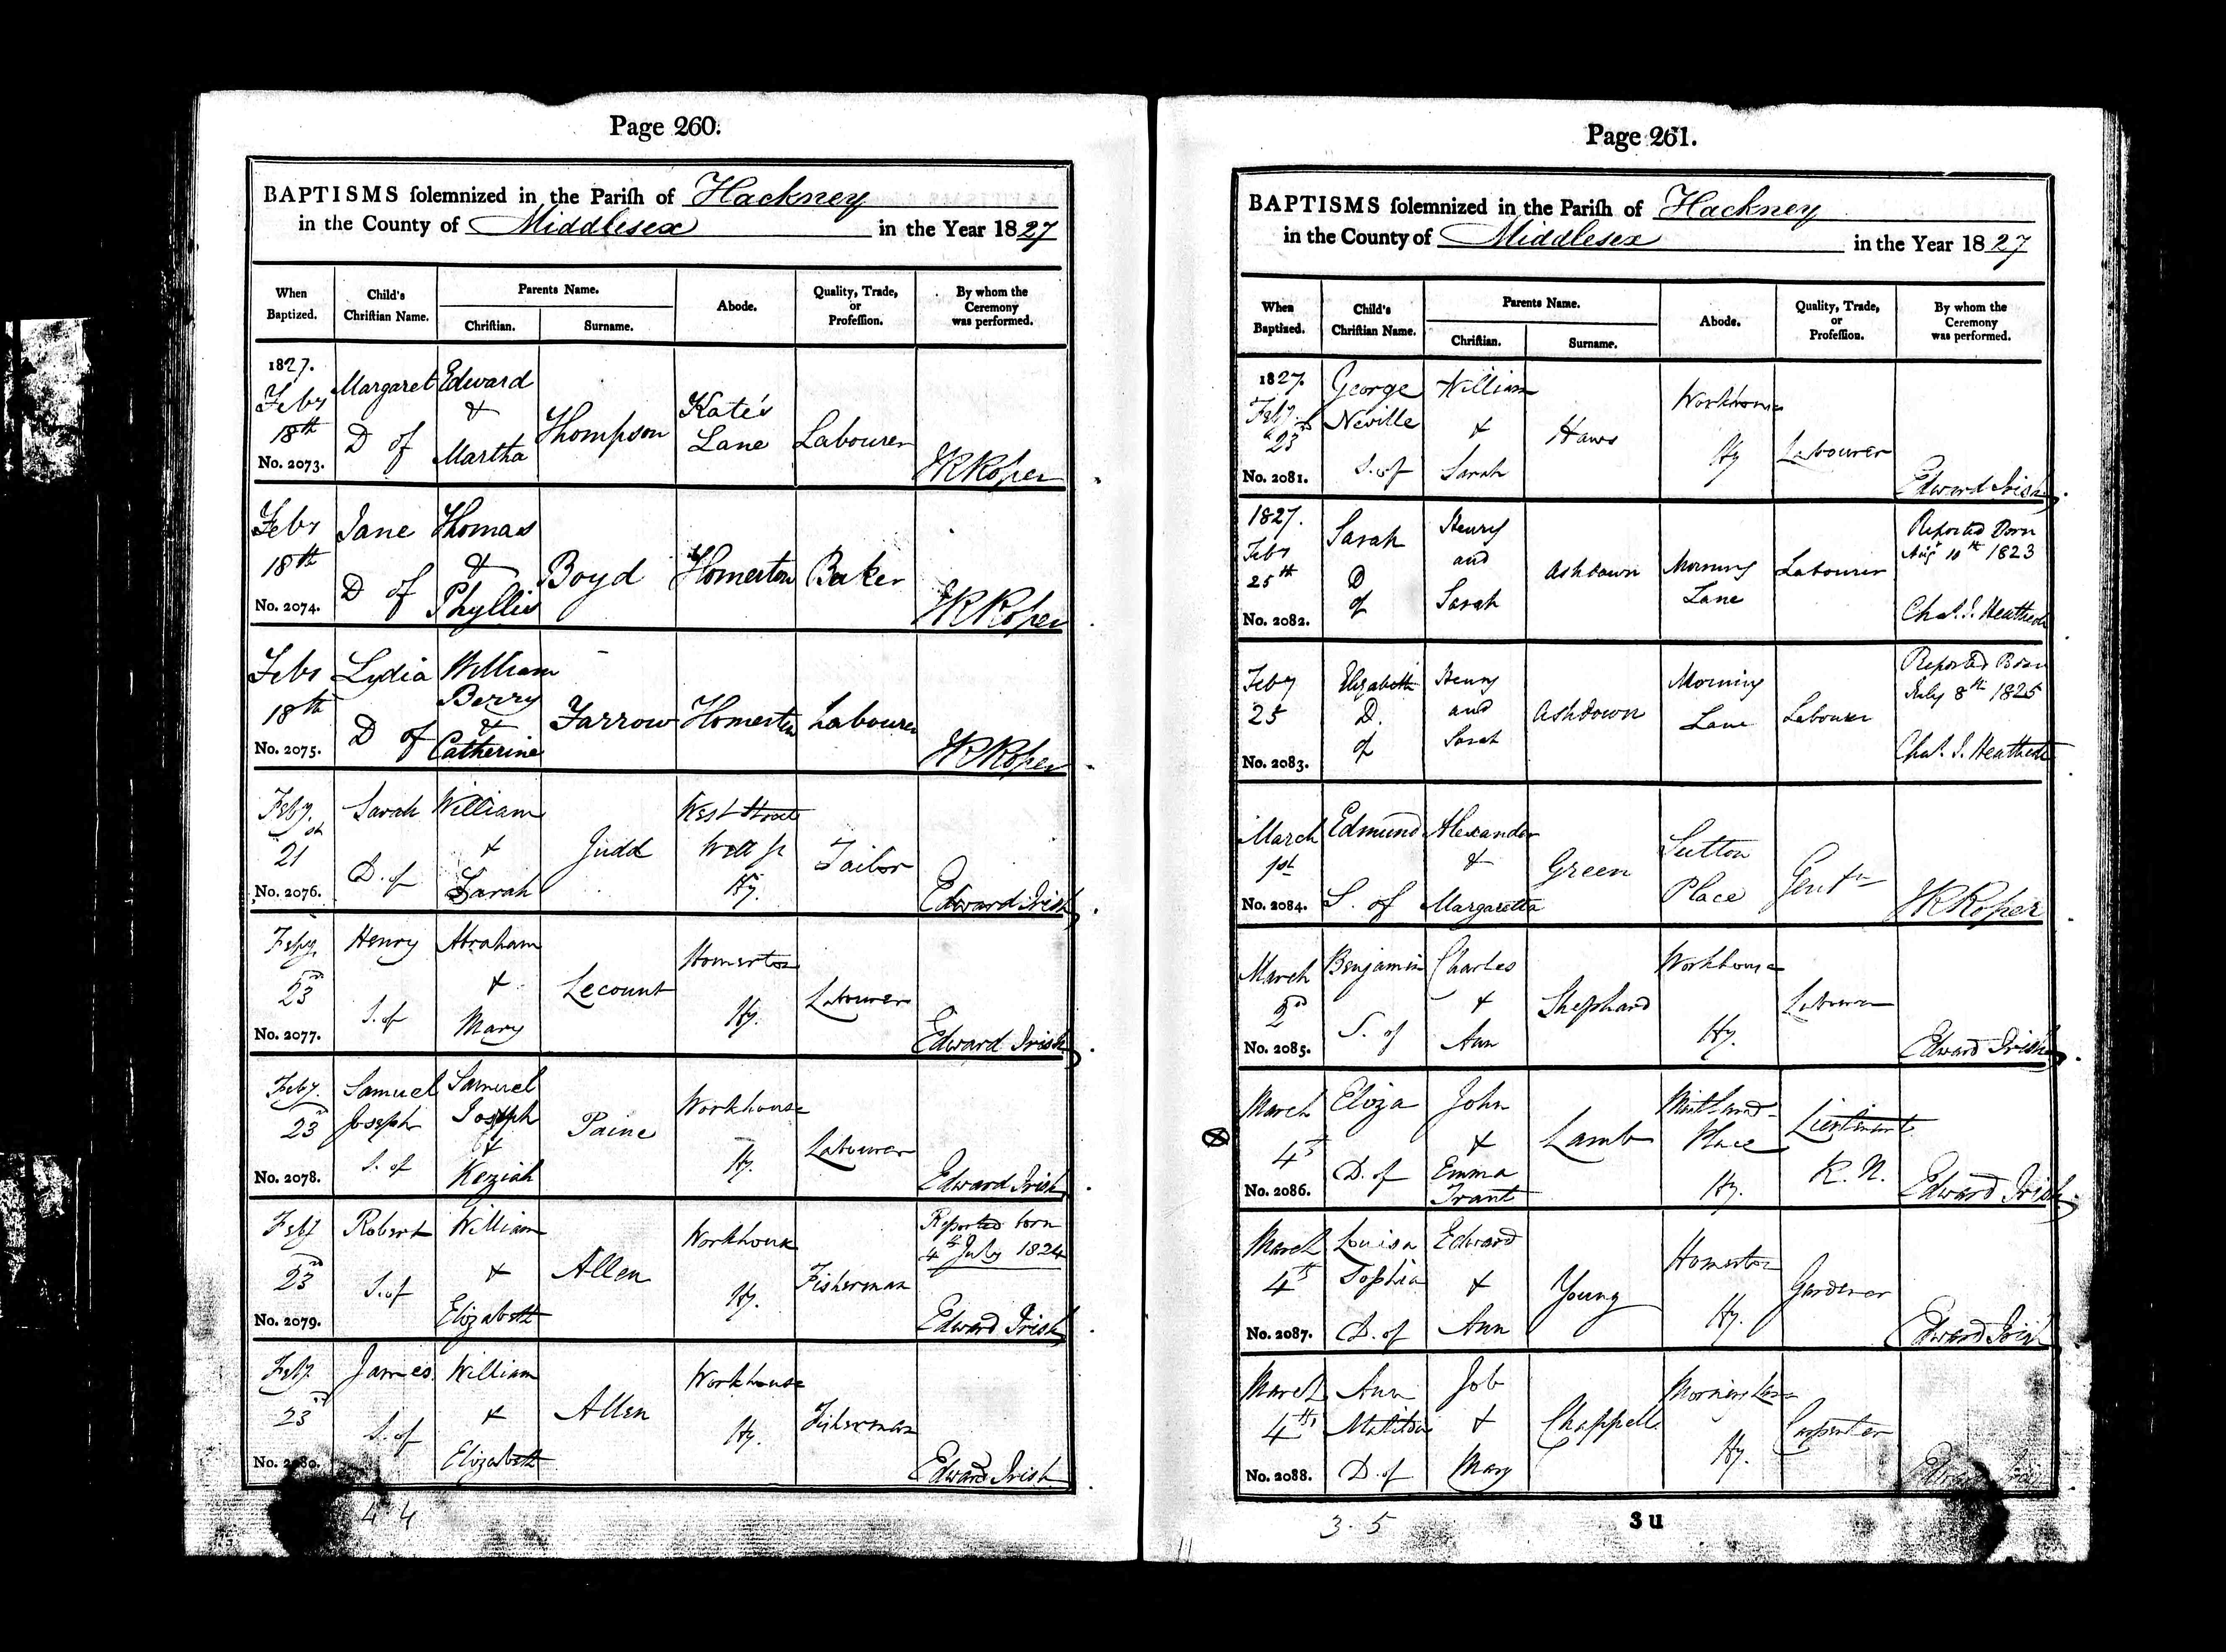 Page 260.
BAPTISMS ſolemnized in the Pariſh of Hackney
in the County of Middlesex in the Year 1827
When Baptized.
Child's Chriſtian Name.
Parents Name.
Chriſtian.
Surname.
Abode.
Quality, Trade, or Profeſſion.
By whom the Ceremony was performed.
1827. Feby 18th No. 2073.
Margaret D of
Edward & Martha
Thompson
Kate's Lane
Labourer
Feby 18th No. 2074.
Jane D of
Thomas & Phyllis
Boyd
Homerton
Baker
Feby 18th No. 2075.
Lydia D of
William Berry & Catherine
Farrow
Homerton
Labourer
Feby. 21st No. 2076.
Sarah D. of
William & Sarah
Judd
West Street Well St Hy.
Tailor
Edward Irish
Feby. 23rd No. 2077.
Henry S. of
Abraham & Mary
Lecount
Homerton Hy.
Labourer
Edward Irish
Feby. 23rd No. 2078.
Samuel Joseph S. of
Samuel Joseph & Keziah
Paine
Workhouse Hy.
Labourer
Edward Irish
Feby 23rd No. 2079.
Robert S. of
William & Elizabeth
Allen
Workhouse Hy.
Fisherman
Reported born 4th July 1824
Edward Irish
Feby. 23rd No. 2080.
James S. of
William & Elizabeth
Allen
Workhouse Hy.
Fisherman
Edward Irish
4 4
Page 261.
BAPTISMS ſolemnized in the Pariſh of Hackney
in the County of Middlesex in the Year 1827
When Baptized.
Child's Chriſtian Name.
Parents Name.
Chriſtian.
Surname.
Abode.
Quality, Trade, or Profeſſion.
By whom the Ceremony was performed.
1827. Feby 23rd No. 2081.
George Neville S. of
William & Sarah
Haws
Workhouse Hy
Labourer
Edward Irish
1827. Feby 25th No. 2082.
Sarah D of
Henry and Sarah
Ashdown
Morning Lane
Labourer
Reported Born Augt 10th 1823
Feby 25 No. 2083.
Elizabeth D. of
Henry and Sarah
Ashdown
Morning Lane
Labourer
Reported Born July 8th 1825
March 1st No. 2084.
Edmund S. of
Alexander & Margaretta
Green
Sutton Place
Gentn
March 2nd No. 2085.
Benjamin S. of
Charles & Ann
Shephard
Workhouse Hy.
Labourer
Edward Irish
March 4th No. 2086.
Eliza D. of
John & Emma Trant
Lamb
Place Hy.
Lieutenant R. N.
Edward Irish
March 4th No. 2087.
Louisa Sophia D. of
Edward & Ann
Young
Homerton Hy.
Gardener
Edward Irish
March 4th No. 2088.
Ann Matilda D. of
Job & Mary
Chappell
Morning Lane Hy.
Carpenter
3. 5
3 U